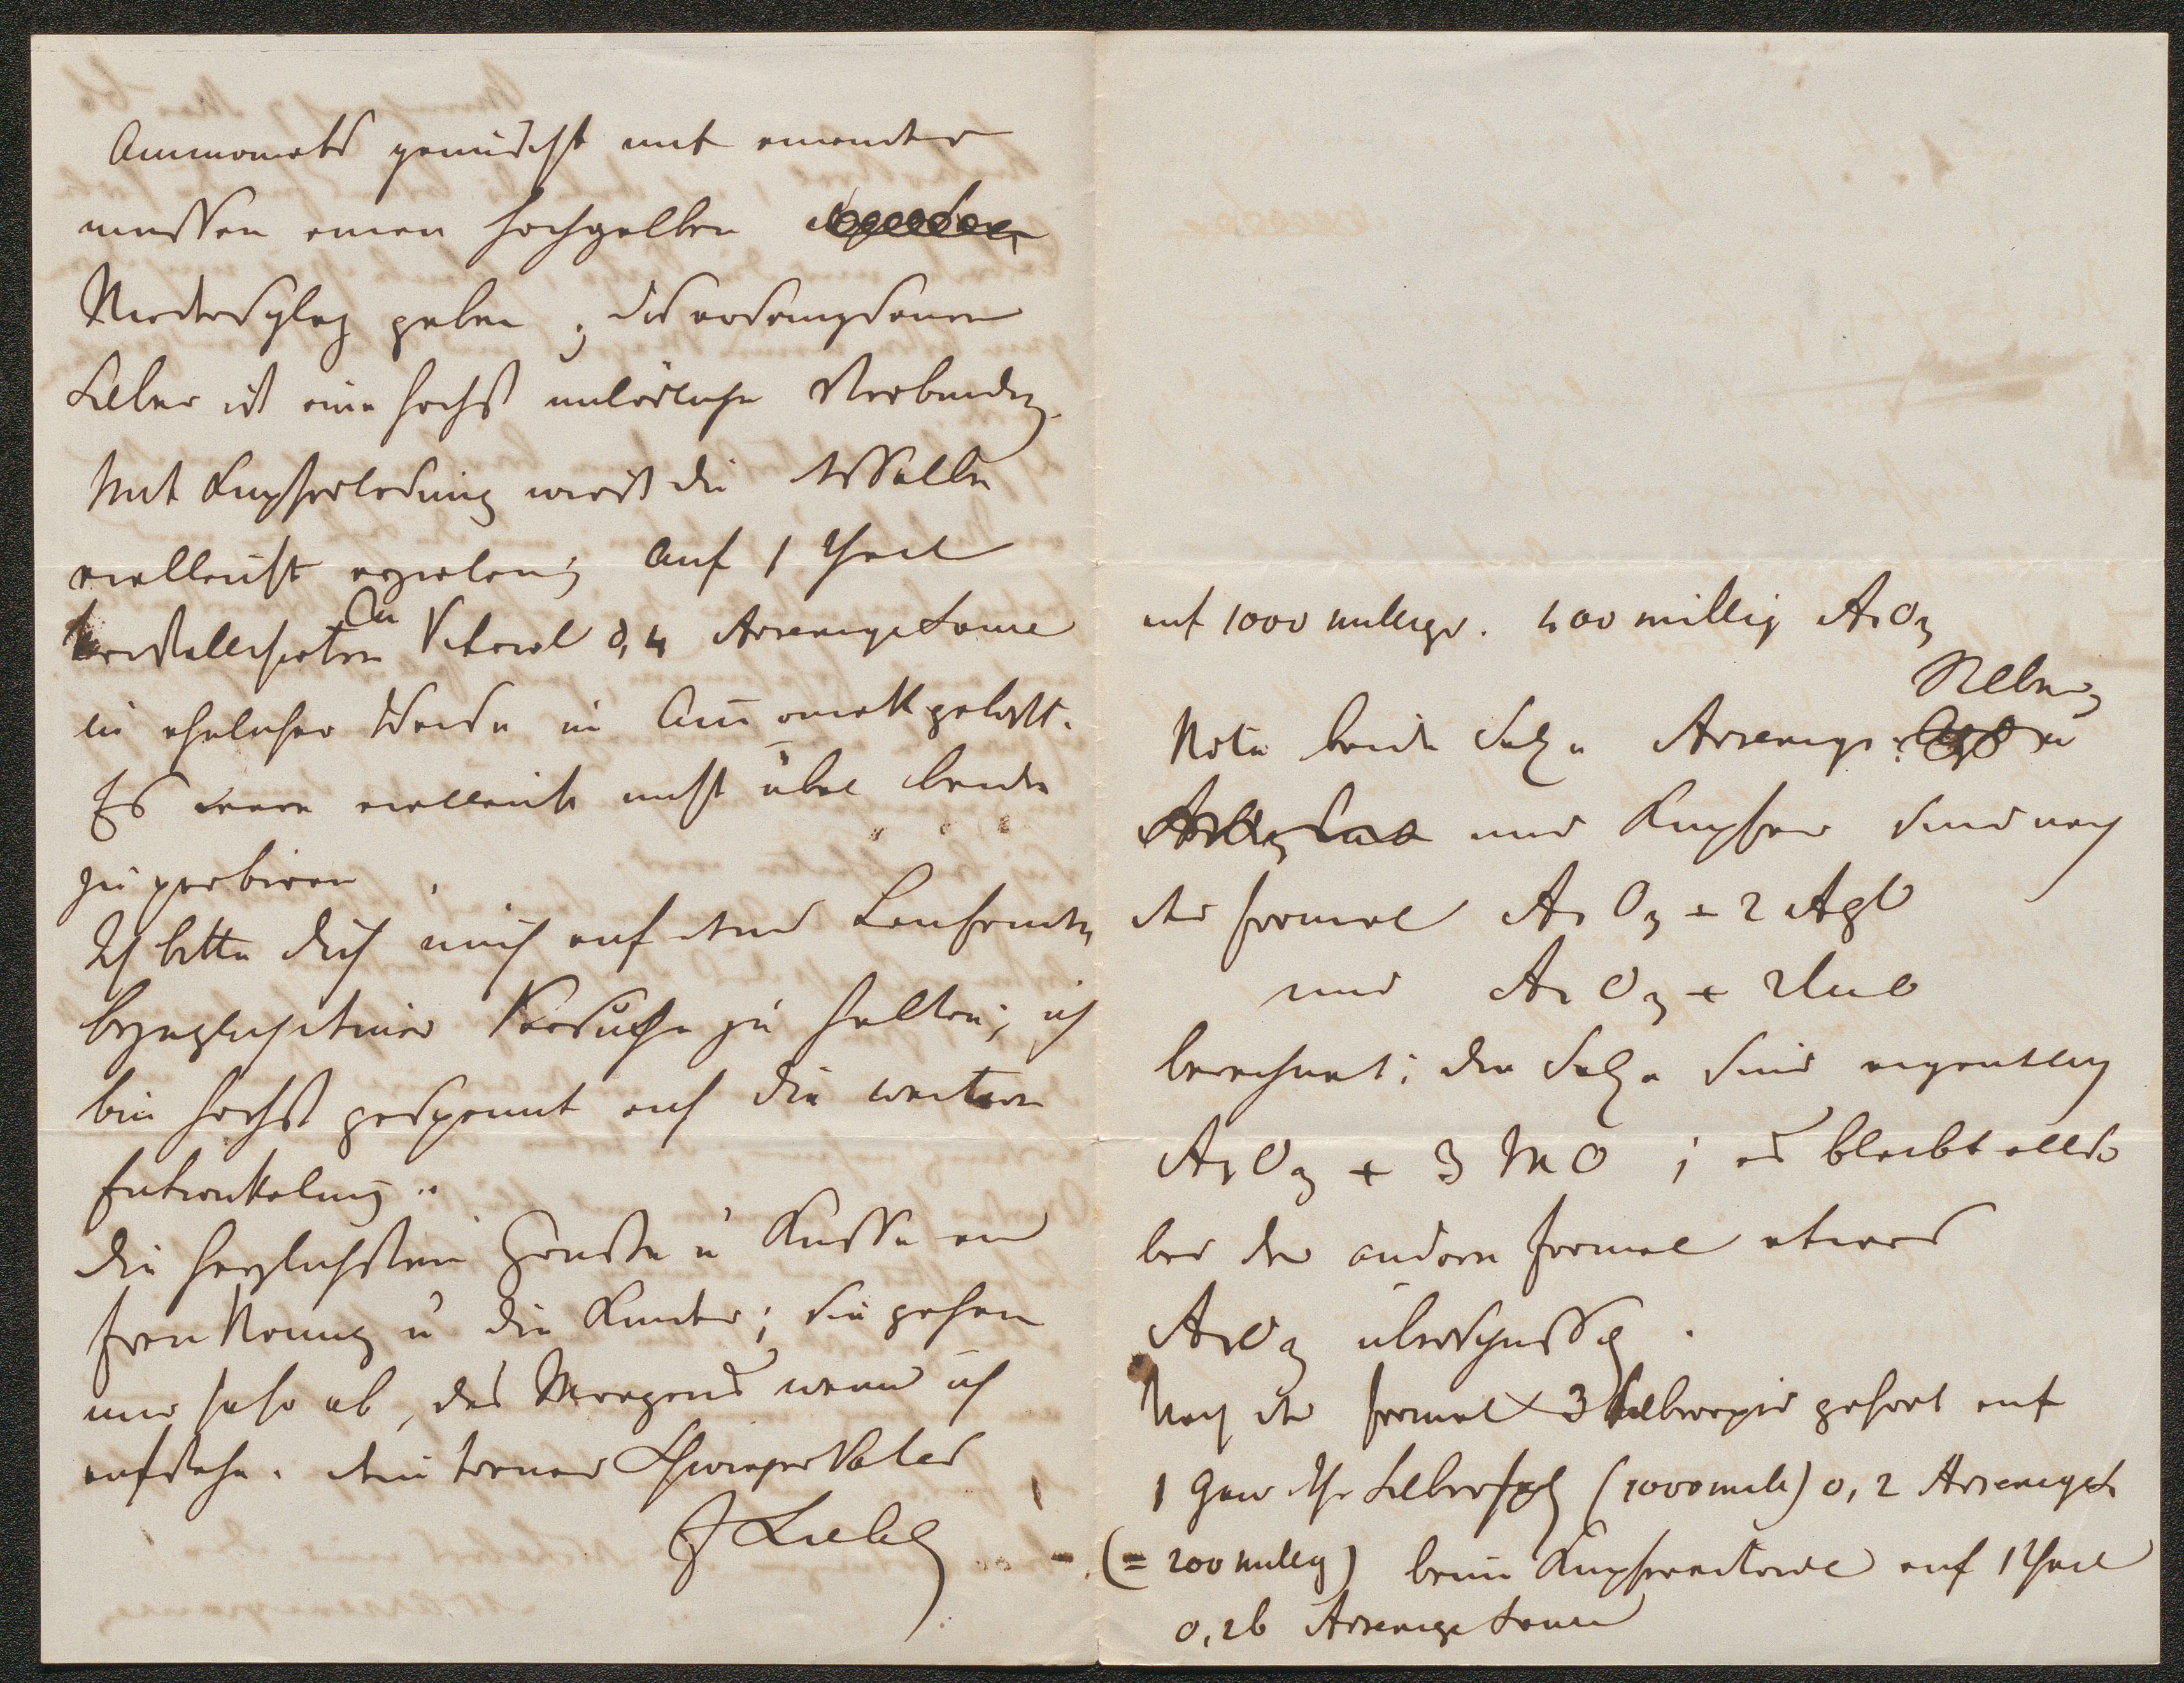 Ammoniak gemischt mit einander
müssen einen hochgelben
Niederschlag geben; das arsenigsaure
Silber ist eine höchst unlösliche Verbindung.
Mit Kupferlösung wirst du dasselbe
vielleicht erzielen; auf 1 Theil
kristallisirten Cu Vitriol 0,4 Arsenige Säure
in ähnlicher Weise in Ammoniak gelöst.
Es wäre vielleicht nicht übel beide
zu probiren
Ich bitte dich mich auf dem Laufenden
bezüglich deiner Versuche zu halten; ich
bin höchst gespannt auf die weitere
Entwickelung.
Die herzlichsten Grüße u Küsse an
Frau Nanny u die Kinder; sie gehen
mir sehr ab, des Morgens wenn ich
aufstehe. Dein treuer Schwiegervater
J Liebig
auf 1000 milligr. 400 millig AsO3
Silber
Nota beide Salze Arsenigs. u
und Kupfer sind nach
der Formel AsO3 + 2 AgO
und AsO3 + 2CuO
berechnet; die Salze sind eigentlich
AsO3 + 3 MO; es bleibt also
bei der andern Formel etwas
AsO3 überschüssig.
Nach der Formel 3 Silberoxid gehört auf
1 Gew Th Silbersalz (1000 mill) 0,2 Arsenige S
(= 200 millig) beim Kupfervitriol auf 1 Theil
0,26 Arsenige Säure